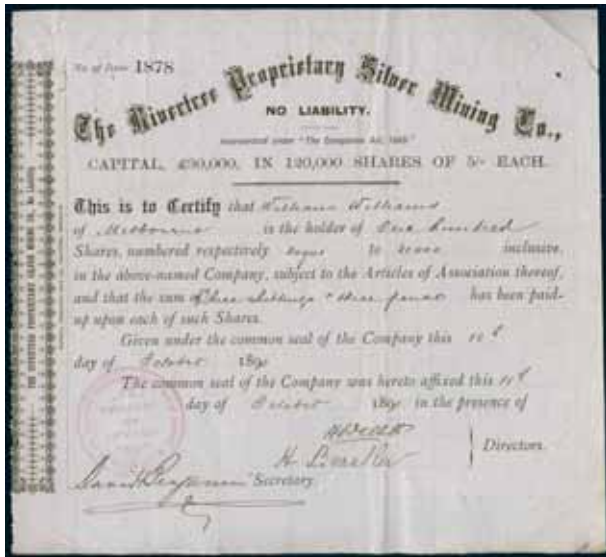 No of Issue 1878
The Rivertree Proprietary Silver Mining Co.,
NO LIABILITY.
Incorporated under "The Companies Act,
CAPITAL, £30,000, IN 120,000 SHARES OF 5/- EACH.
This is to Certify that William Williams
of Melbourne is the holder of One hundred
Shares, numbered respectively to inclusive,
in the above-named Company, subject to the Articles of Association thereof,
and that the sum of Three shillings & nine pence has been paid-
up upon each of such Shares.
Given under the common seal of the Company this 10th
day of October 189
The common seal of the Company was hereto affixed this 10th
day of October 189 in the presence of
Directors.
David Benjamin Secretary.
THE RIVERTREE PROPRIETARY SILVER MINING CO., No Liability.